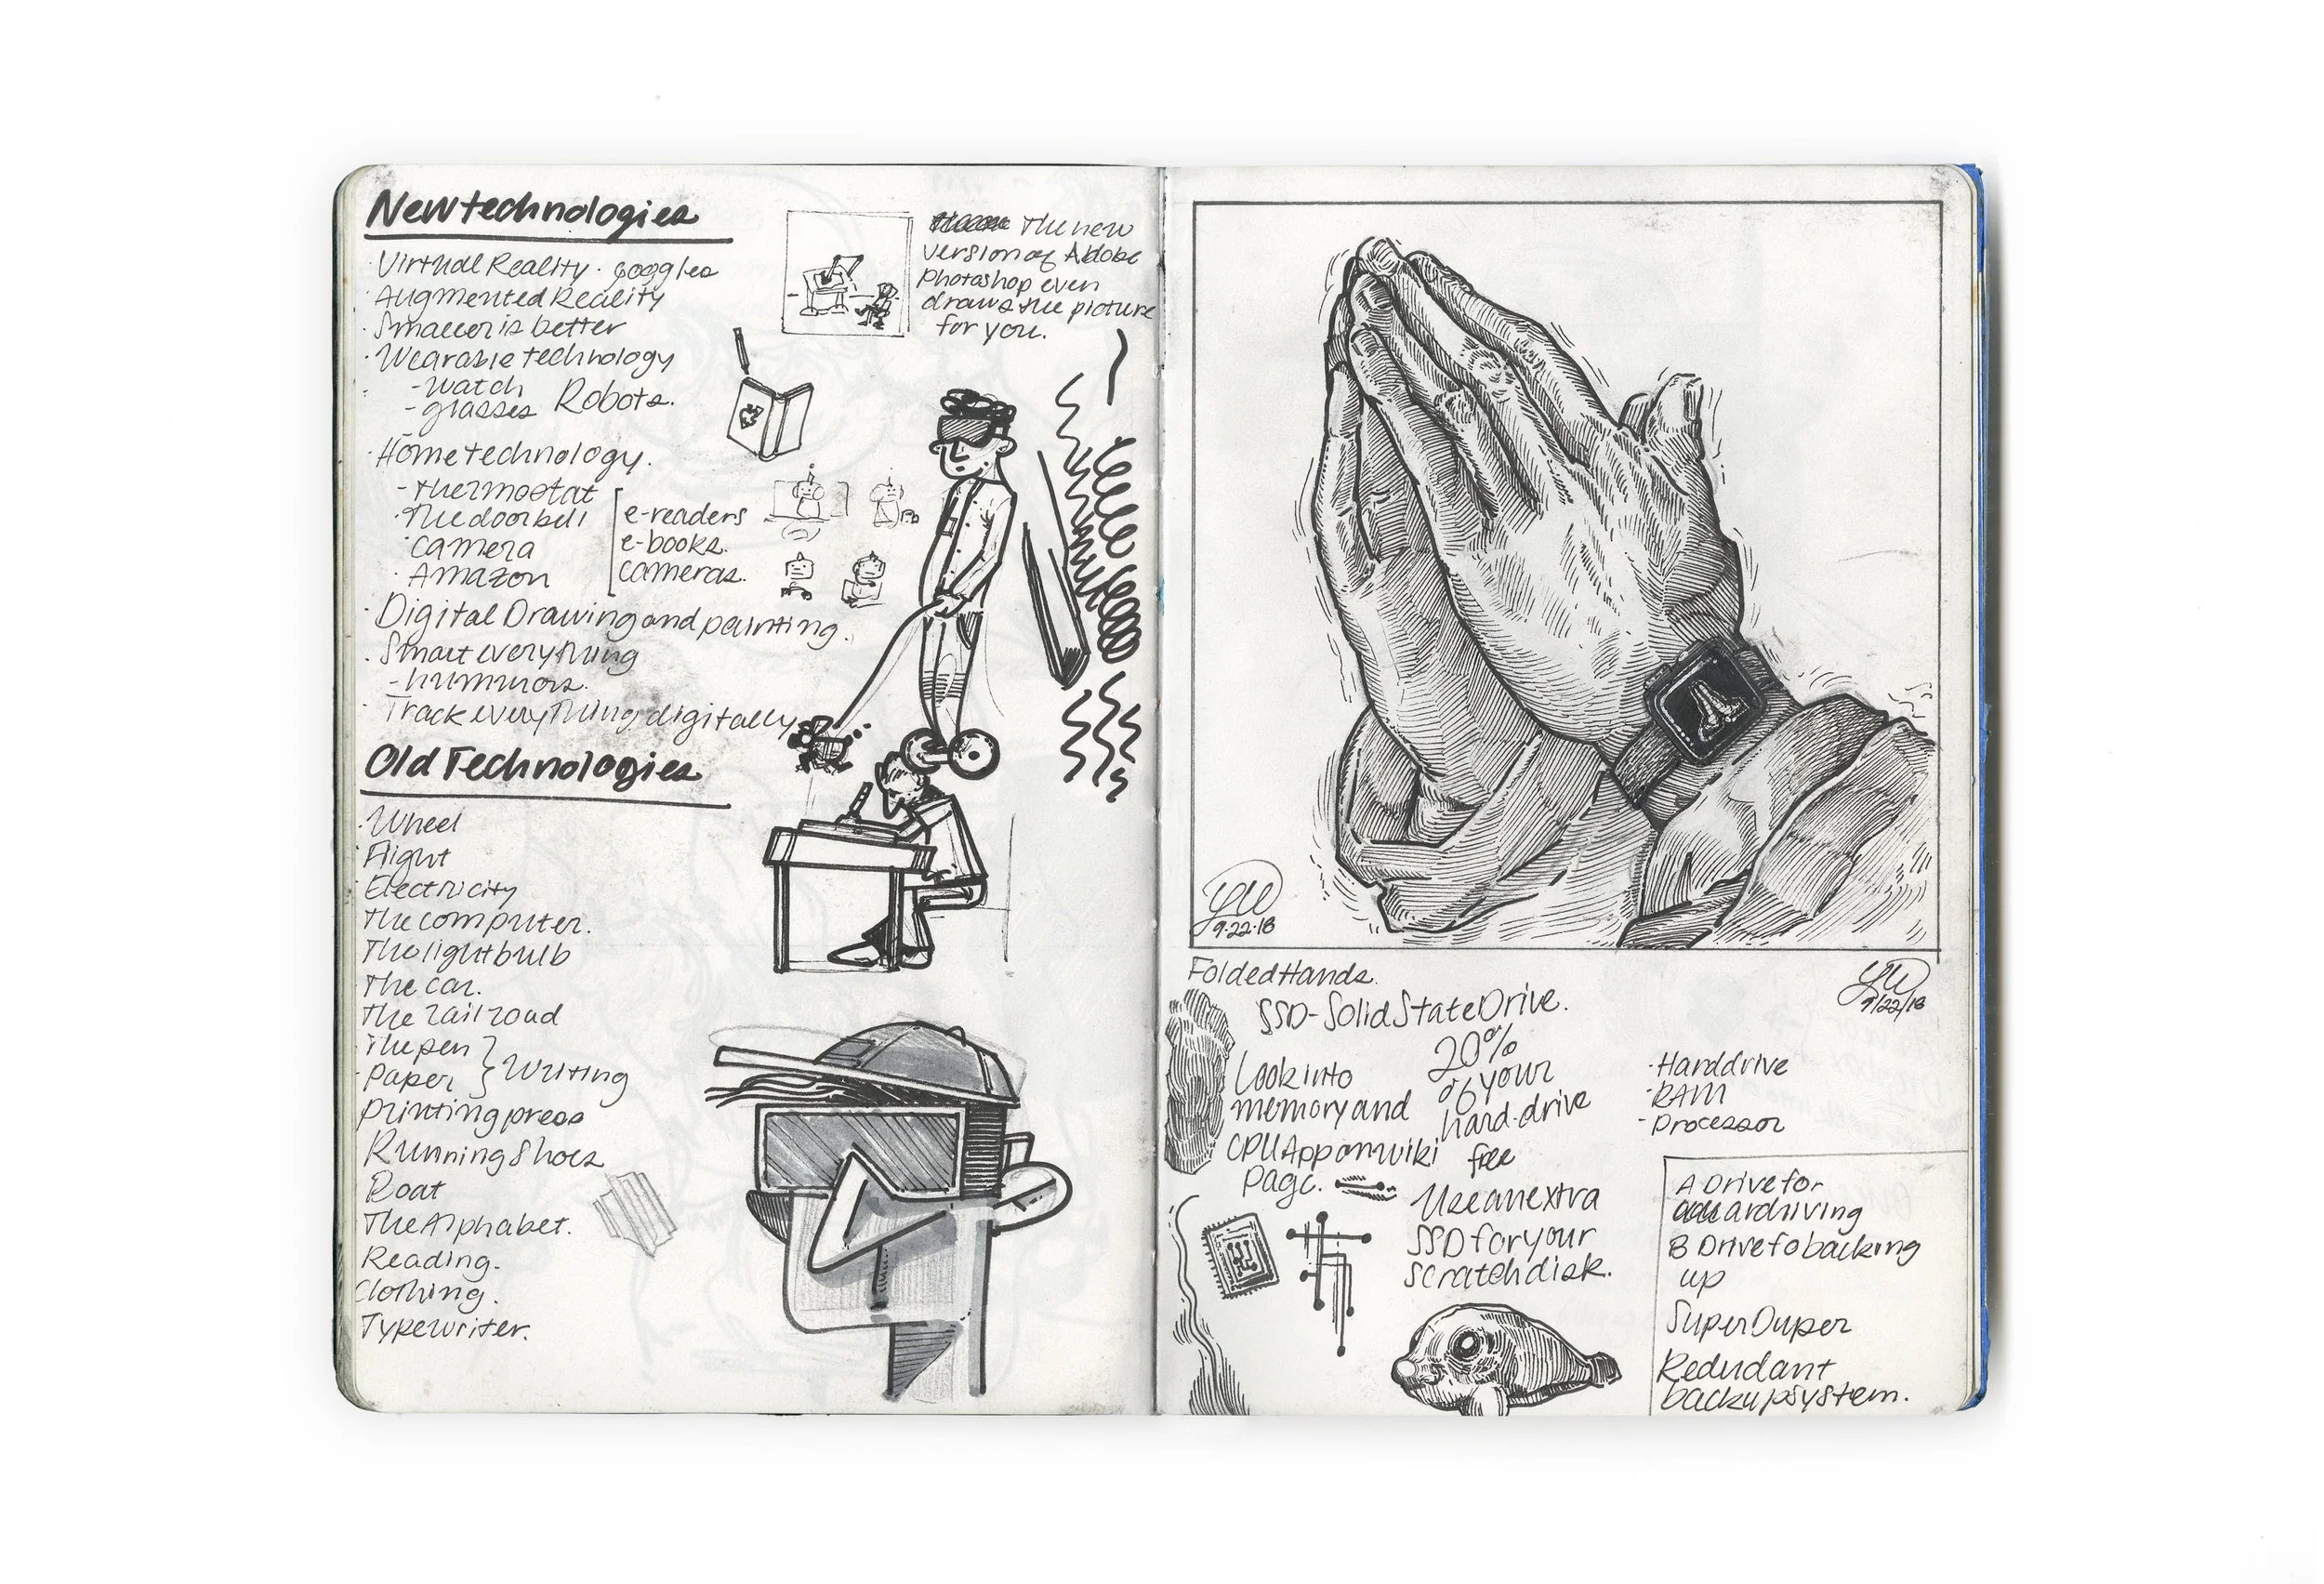 New technologies
· Virtual Reality · goggles
· Augmented Reality
· Smaller is better
· Wearable technology
- watch
- glasses Robots.
· Home technology.
- thermostat
· The doorbell
· camera
· Amazon
e-readers
e-books.
cameras.
· Digital Drawing and painting.
· Smart everything
- hummers.
· Track everything digitally
The new
version of Adobe
photoshop even
draws the picture
for you.
Old Technologies
· Wheel
· Flight
· Electricity
The computer.
The lightbulb
The car.
The railroad
The pen
· paper } Writing
printing press
Running Shoes
Boat
The Alphabet.
Reading.
Clothing.
Typewriter.
9·22·18
Folded Hands.
9/22/18
SSD - Solid State Drive.
Look into
memory and
CPU App on wiki
page.
20%
of your
hard-drive
free
Use an extra
SSD for your
scratch disk.
· Harddrive
· RAM
· Processor
A Drive for
ardriving
B Drive fo backing
up
Super Duper
Redundant
backup system.